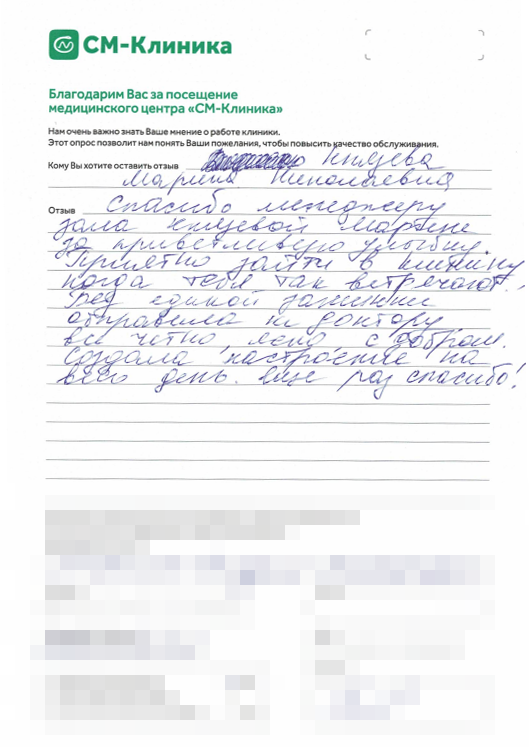 СМ-Клиника
Благодарим Вас за посещение
медицинского центра «СМ-Клиника»
Нам очень важно знать Ваше мнение о работе клиники.
Этот опрос позволит нам понять Ваши пожелания, чтобы повысить качество обслуживания.
Кому Вы хотите оставить отзыв Князева
Марина Николаевна
Отзыв Спасибо менеджеру
зала Князевой Марине
за приветливую улыбку.
Приятно зайти в клинику
когда тебя так встречают.
Без единой заминки
отправила к доктору
все четко, ясно, с добром.
Создала настроение на
весь день. Еще раз спасибо!